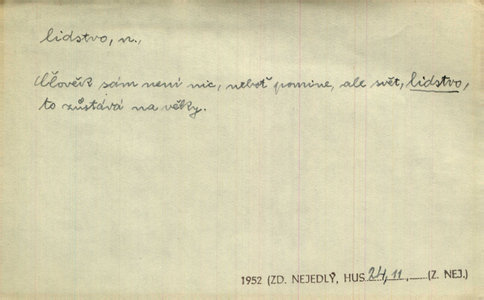 lidstvo, n.,
Člověk sám není nic, neboť pomine, ale svět, lidstvo,
to zůstává na věky.
1952 (ZD. NEJEDLÝ, HUS 24, 11, (Z. NEJ.)